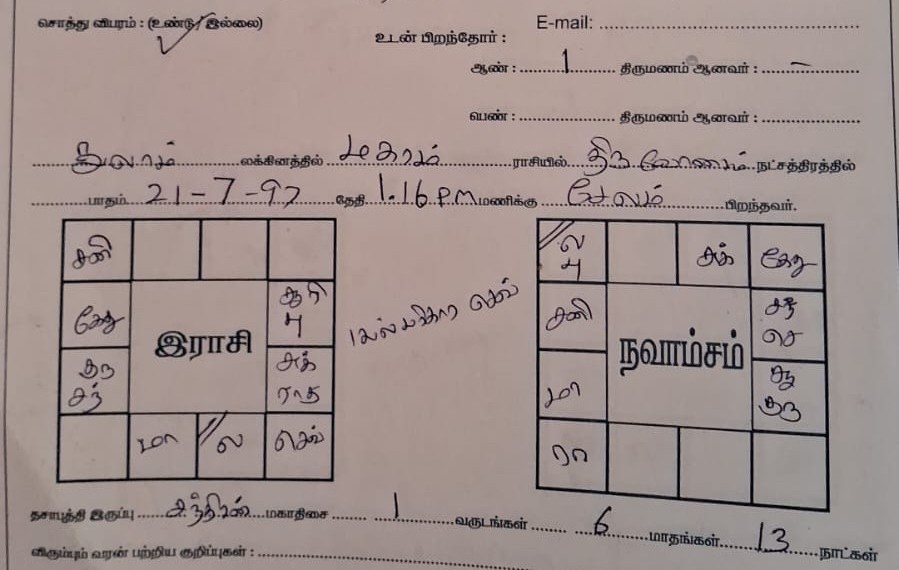 சொத்து விபரம் : (உண்டு / இல்லை)
E-mail:
உடன் பிறந்தோர் :
ஆண் : 1 திருமணம் ஆனவர் : –
பெண் : திருமணம் ஆனவர் :
துலாம் லக்கினத்தில் மகரம் ராசியில் திருவோணம் நட்சத்திரத்தில்
பாதம் 21-7-97 தேதி 1.16 P.M மணிக்கு சேலம் பிறந்தவர்.
சனி
கேது
குரு
சந்
சூரி
பு
சுக்
ராகு
மா
ல
செவ்
இராசி
ல
பு
சுக்
கேது
சனி
சந்
செ
மா
சூ
குரு
ரா
நவாம்சம்
தசாபுத்தி இருப்பு சந்திரன் மகாதிசை 1 வருடங்கள் 6 மாதங்கள் 13 நாட்கள்
விரும்பும் வரன் பற்றிய குறிப்புகள் :